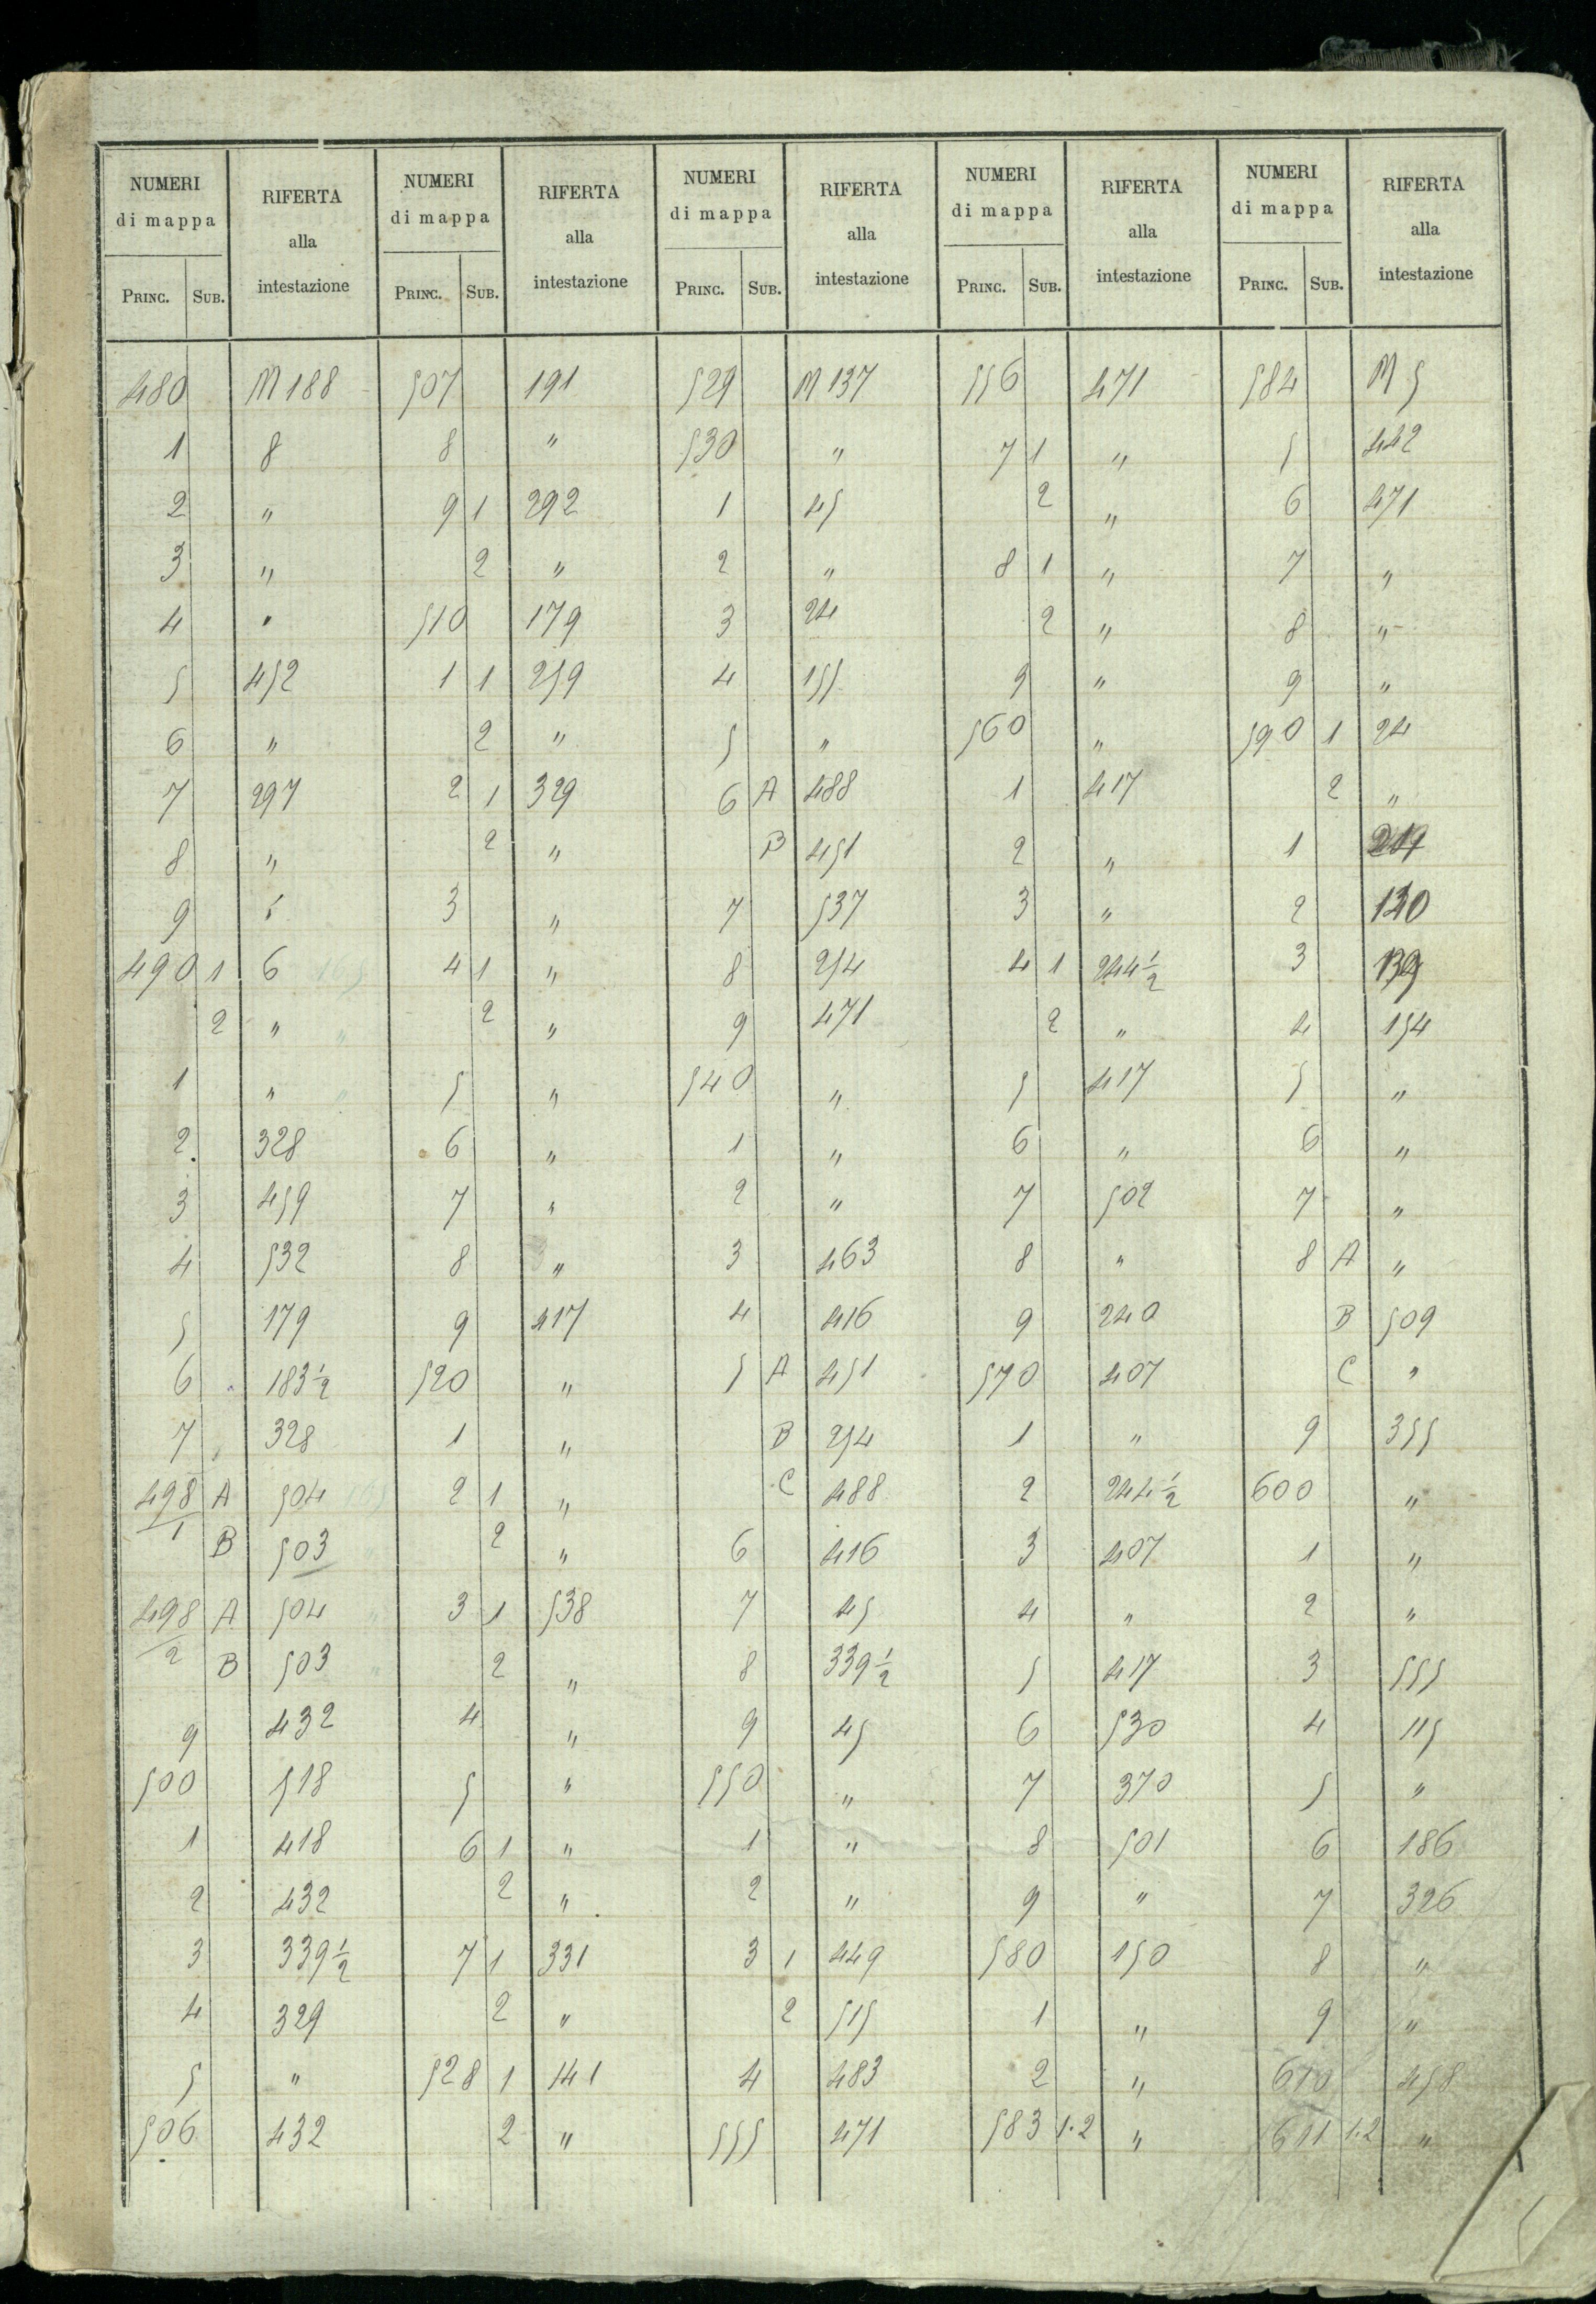 NUMERI di mappa RIFERTA alla intestazione NUMERI di mappa RIFERTA alla intestazione NUMERI di mappa RIFERTA alla intestazione NUMERI di mappa RIFERTA alla intestazione NUMERI di mappa RIFERTA alla intestazione
PRINC. SUB. PRINC. SUB. PRINC. SUB. PRINC. SUB. PRINC. SUB.
480 M 188 507 191 529 M 137 556 471 584 M 5
1 8 8 " 530 " 7 1 " 5 442
2 " 9 1 292 1 45 2 " 6 471
3 " 2 " 2 " 8 1 " 7 "
4 " 510 179 3 24 2 " 8 "
5 452 1 1 259 4 155 9 " 9 "
6 " 2 " 5 " 560 " 590 1 24
7 297 2 1 329 6 A 488 1 417 2 "
8 " 2 " B 451 2 " 1
9 " 3 " 7 537 3 " 2 130
490 1 6 165 4 1 " 8 254 4 1 244½ 3 139
2 " " 2 " 9 471 2 " 4 154
1 " " 5 " 540 " 5 417 5 "
2 328 6 " 1 " 6 " 6 "
3 459 7 " 2 " 7 502 7 "
4 532 8 " 3 463 8 " 8 A "
5 179 9 417 4 416 9 240 B 509
6 183½ 520 " 5 A 451 570 407 C "
7 328 1 " B 254 1 " 9 355
498/1 A 504 165 2 1 " C 488 2 244½ 600 "
B 503 " 2 " 6 416 3 407 1 "
498/2 A 504 " 3 1 538 7 45 4 " 2 "
B 503 " 2 " 8 339½ 5 417 3 555
9 432 4 " 9 45 6 530 4 115
500 518 5 " 550 " 7 370 5 "
1 418 6 1 " 1 " 8 501 6 186
2 432 2 " 2 " 9 " 7 326
3 339½ 7 1 331 3 1 449 580 150 8 "
4 329 2 " 2 515 1 " 9 "
5 " 528 1 141 4 483 2 " 610 458
506 432 2 " 555 471 583 1.2 " 611 1.2 "